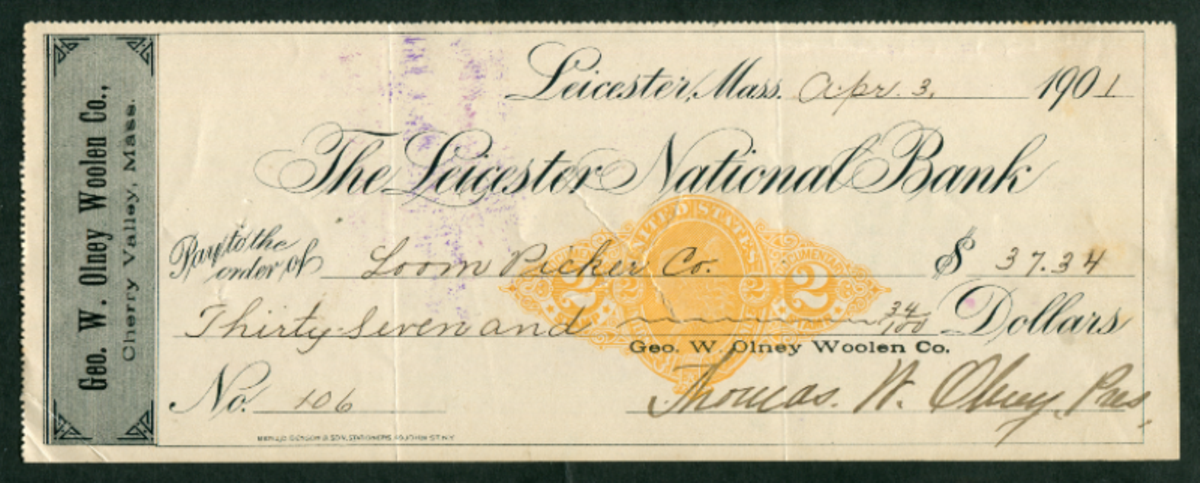 Geo. W. Olney Woolen Co.,
Cherry Valley, Mass.
Leicester, Mass. Apr. 3, 1901
The Leicester National Bank
Pay to the
order of Loom Picker Co. $ 37.34
UNITED STATES
2 2 2 2
Thirty-Seven and 34/100 Dollars
Geo. W. Olney Woolen Co.
No. 106 Thomas. W. Olney, Pres.